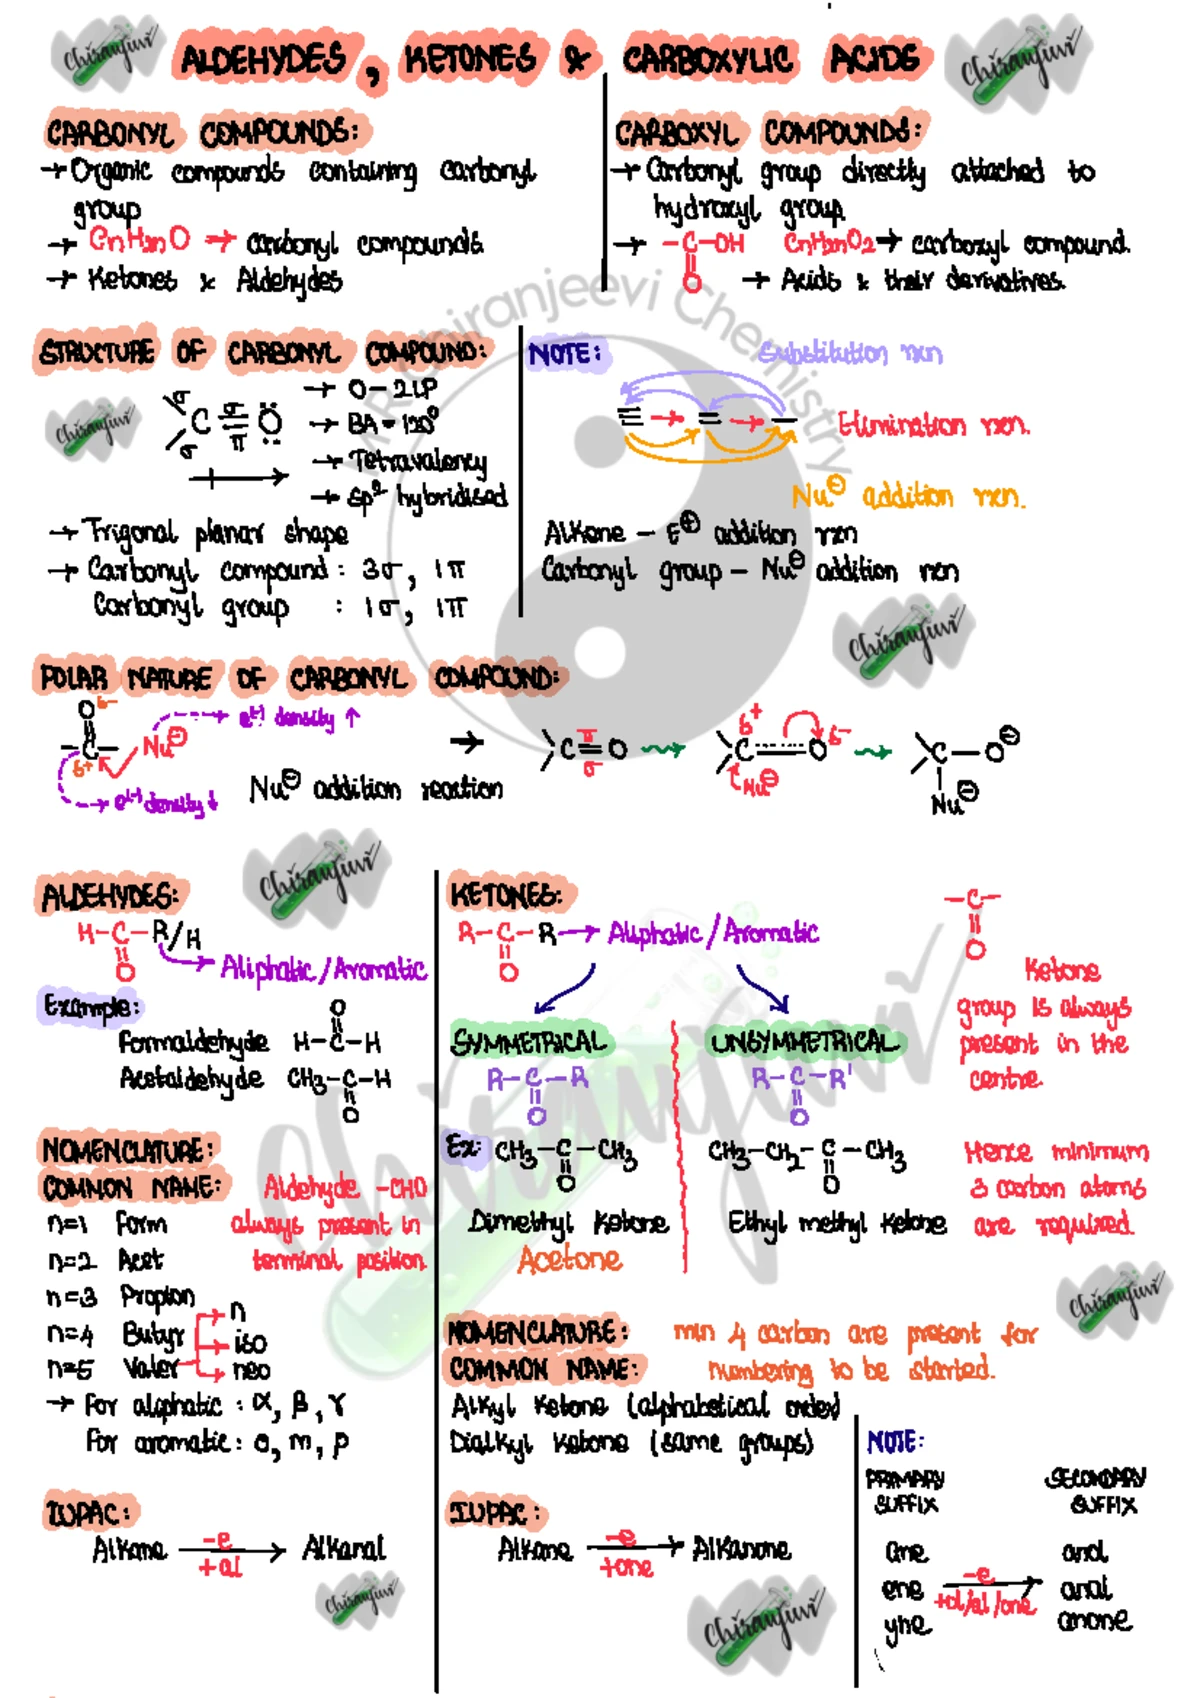 ALDEHYDES, KETONES & CARBOXYLIC ACIDS
CARBONYL COMPOUNDS:
→ Organic compounds containing carbonyl
group
→ CnH2nO → carbonyl compounds
→ Ketones & Aldehydes
CARBOXYL COMPOUNDS:
→ Carbonyl group directly attached to
hydroxyl group
→ -C-OH CnH2nO2 → carboxyl compound.
O
→ Acids & their derivatives.
STRUCTURE OF CARBONYL COMPOUND:
σ C σ π O
σ
→ O - 2LP
→ BA = 120°
→ Tetravalency
→ sp² hybridised
→ Trigonal planar shape
→ Carbonyl compound : 3σ, 1π
Carbonyl group : 1σ, 1π
NOTE:
Substitution rxn
≡ → = → -
Elimination rxn.
Nu⊖ addition rxn.
Alkene - E⊕ addition rxn
Carbonyl group - Nu⊖ addition rxn
MR Chiranjeevi Chemistry
POLAR NATURE OF CARBONYL COMPOUND:
O δ-
-C- Nu⊖ → e(-) density ↑
δ+
→ e(-) density ↓
Nu⊖ addition reaction
→ C π σ O
δ+ C O δ-
Nu⊖
C - O⊖
Nu⊖
ALDEHYDES:
H-C-R/H
O
→ Aliphatic/Aromatic
Example:
O
Formaldehyde H-C-H
Acetaldehyde CH3-C-H
O
NOMENCLATURE:
COMMON NAME:
Aldehyde -CHO
always present in
terminal position.
n=1 Form
n=2 Acet
n=3 Propion
n=4 Butyr
n=5 Valer
n
iso
neo
→ For aliphatic : α, β, γ
For aromatic : o, m, p
IUPAC:
Alkane -e +al → Alkanal
KETONES:
R-C-R → Aliphatic/Aromatic
O
-C-
O
Ketone
group is always
present in the
centre.
SYMMETRICAL
R-C-R
O
UNSYMMETRICAL
R-C-R'
O
Ex: CH3-C-CH3
O
Dimethyl Ketone
Acetone
CH3-CH2-C-CH3
O
Ethyl methyl Ketone
Hence minimum
3 carbon atoms
are required.
NOMENCLATURE:
COMMON NAME:
min 4 carbon are present for
numbering to be started.
Alkyl Ketone (alphabetical order)
Dialkyl Ketone (same groups)
IUPAC:
Alkane -e +one → Alkanone
NOTE:
PRIMARY SUFFIX
SECONDARY SUFFIX
ane
ene
yne
-e
+ol/al/one
anol
anal
anone
Chiranjuvi
Chiranjuvi
Chiranjuvi
Chiranjuvi
Chiranjuvi
Chiranjuvi
Chiranjuvi
Chiranjuvi
Chiranjuvi